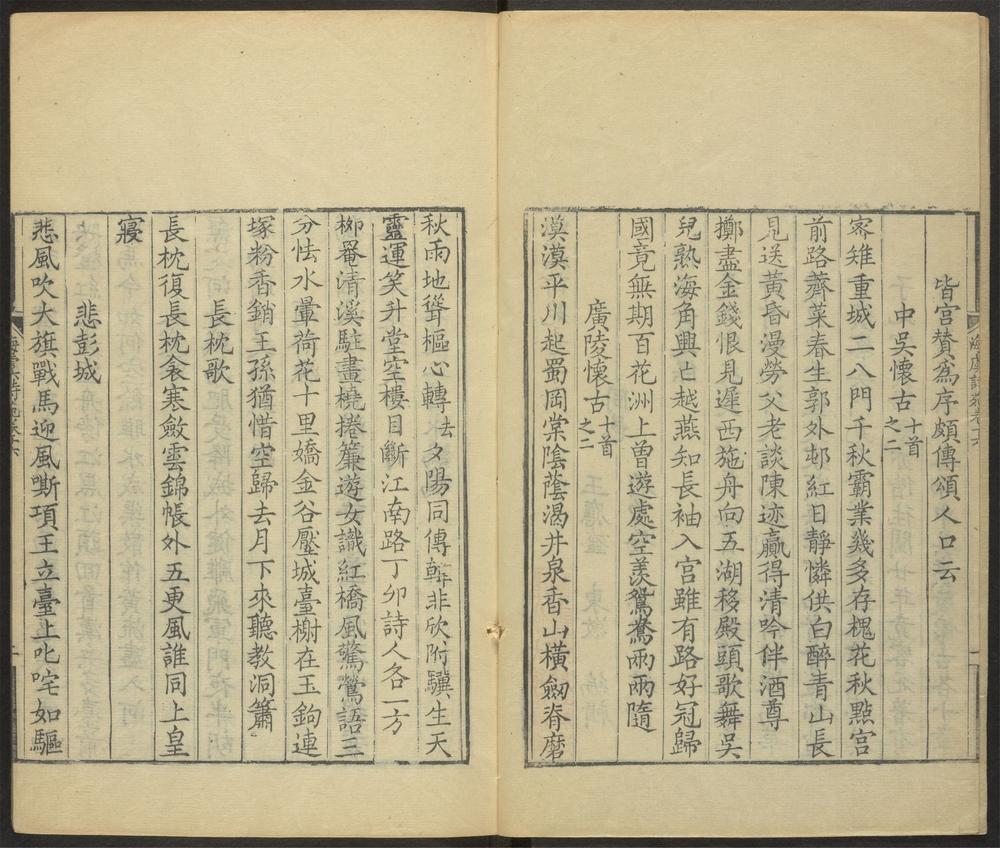 皆宮贊為序頗傳頌人口云
中吳懷古十首之二
寀雉重城二八門千秋霸業幾多存槐花秋點宮
前路薺菜春生郭外邨紅日靜憐供白醉青山長
見送黃昏漫勞父老談陳迹贏得清吟伴酒尊
擲盡金錢恨見遲西施舟向五湖移殿頭歌舞吳
兒熟海角興亡越燕知長袖入宮雖有路好冠歸
國竟無期百花洲上曾遊處空羨鴛鴦兩兩隨
廣陵懷古十首之二
漠漠平川起蜀岡棠陰蔭渴井泉香山橫劒脊磨
秋雨地聳樞心轉去夕陽同傳斡非欣附驥生天
靈運笑升堂空樓目斷江南路丁卯詩人各一方
栁罨清溪駐畫橈捲簾遊女識紅橋風驚鶯語三
分怯水暈荷花十里嬌金谷壓城臺榭在玉鉤連
塚粉香銷王孫猶惜空歸去月下來聽教洞簫
長枕歌
長枕復長枕衾寒斂雲錦帳外五更風誰同上皇
寢
悲彭城
悲風吹大旗戰馬迎風嘶項王立臺上叱咤如驅